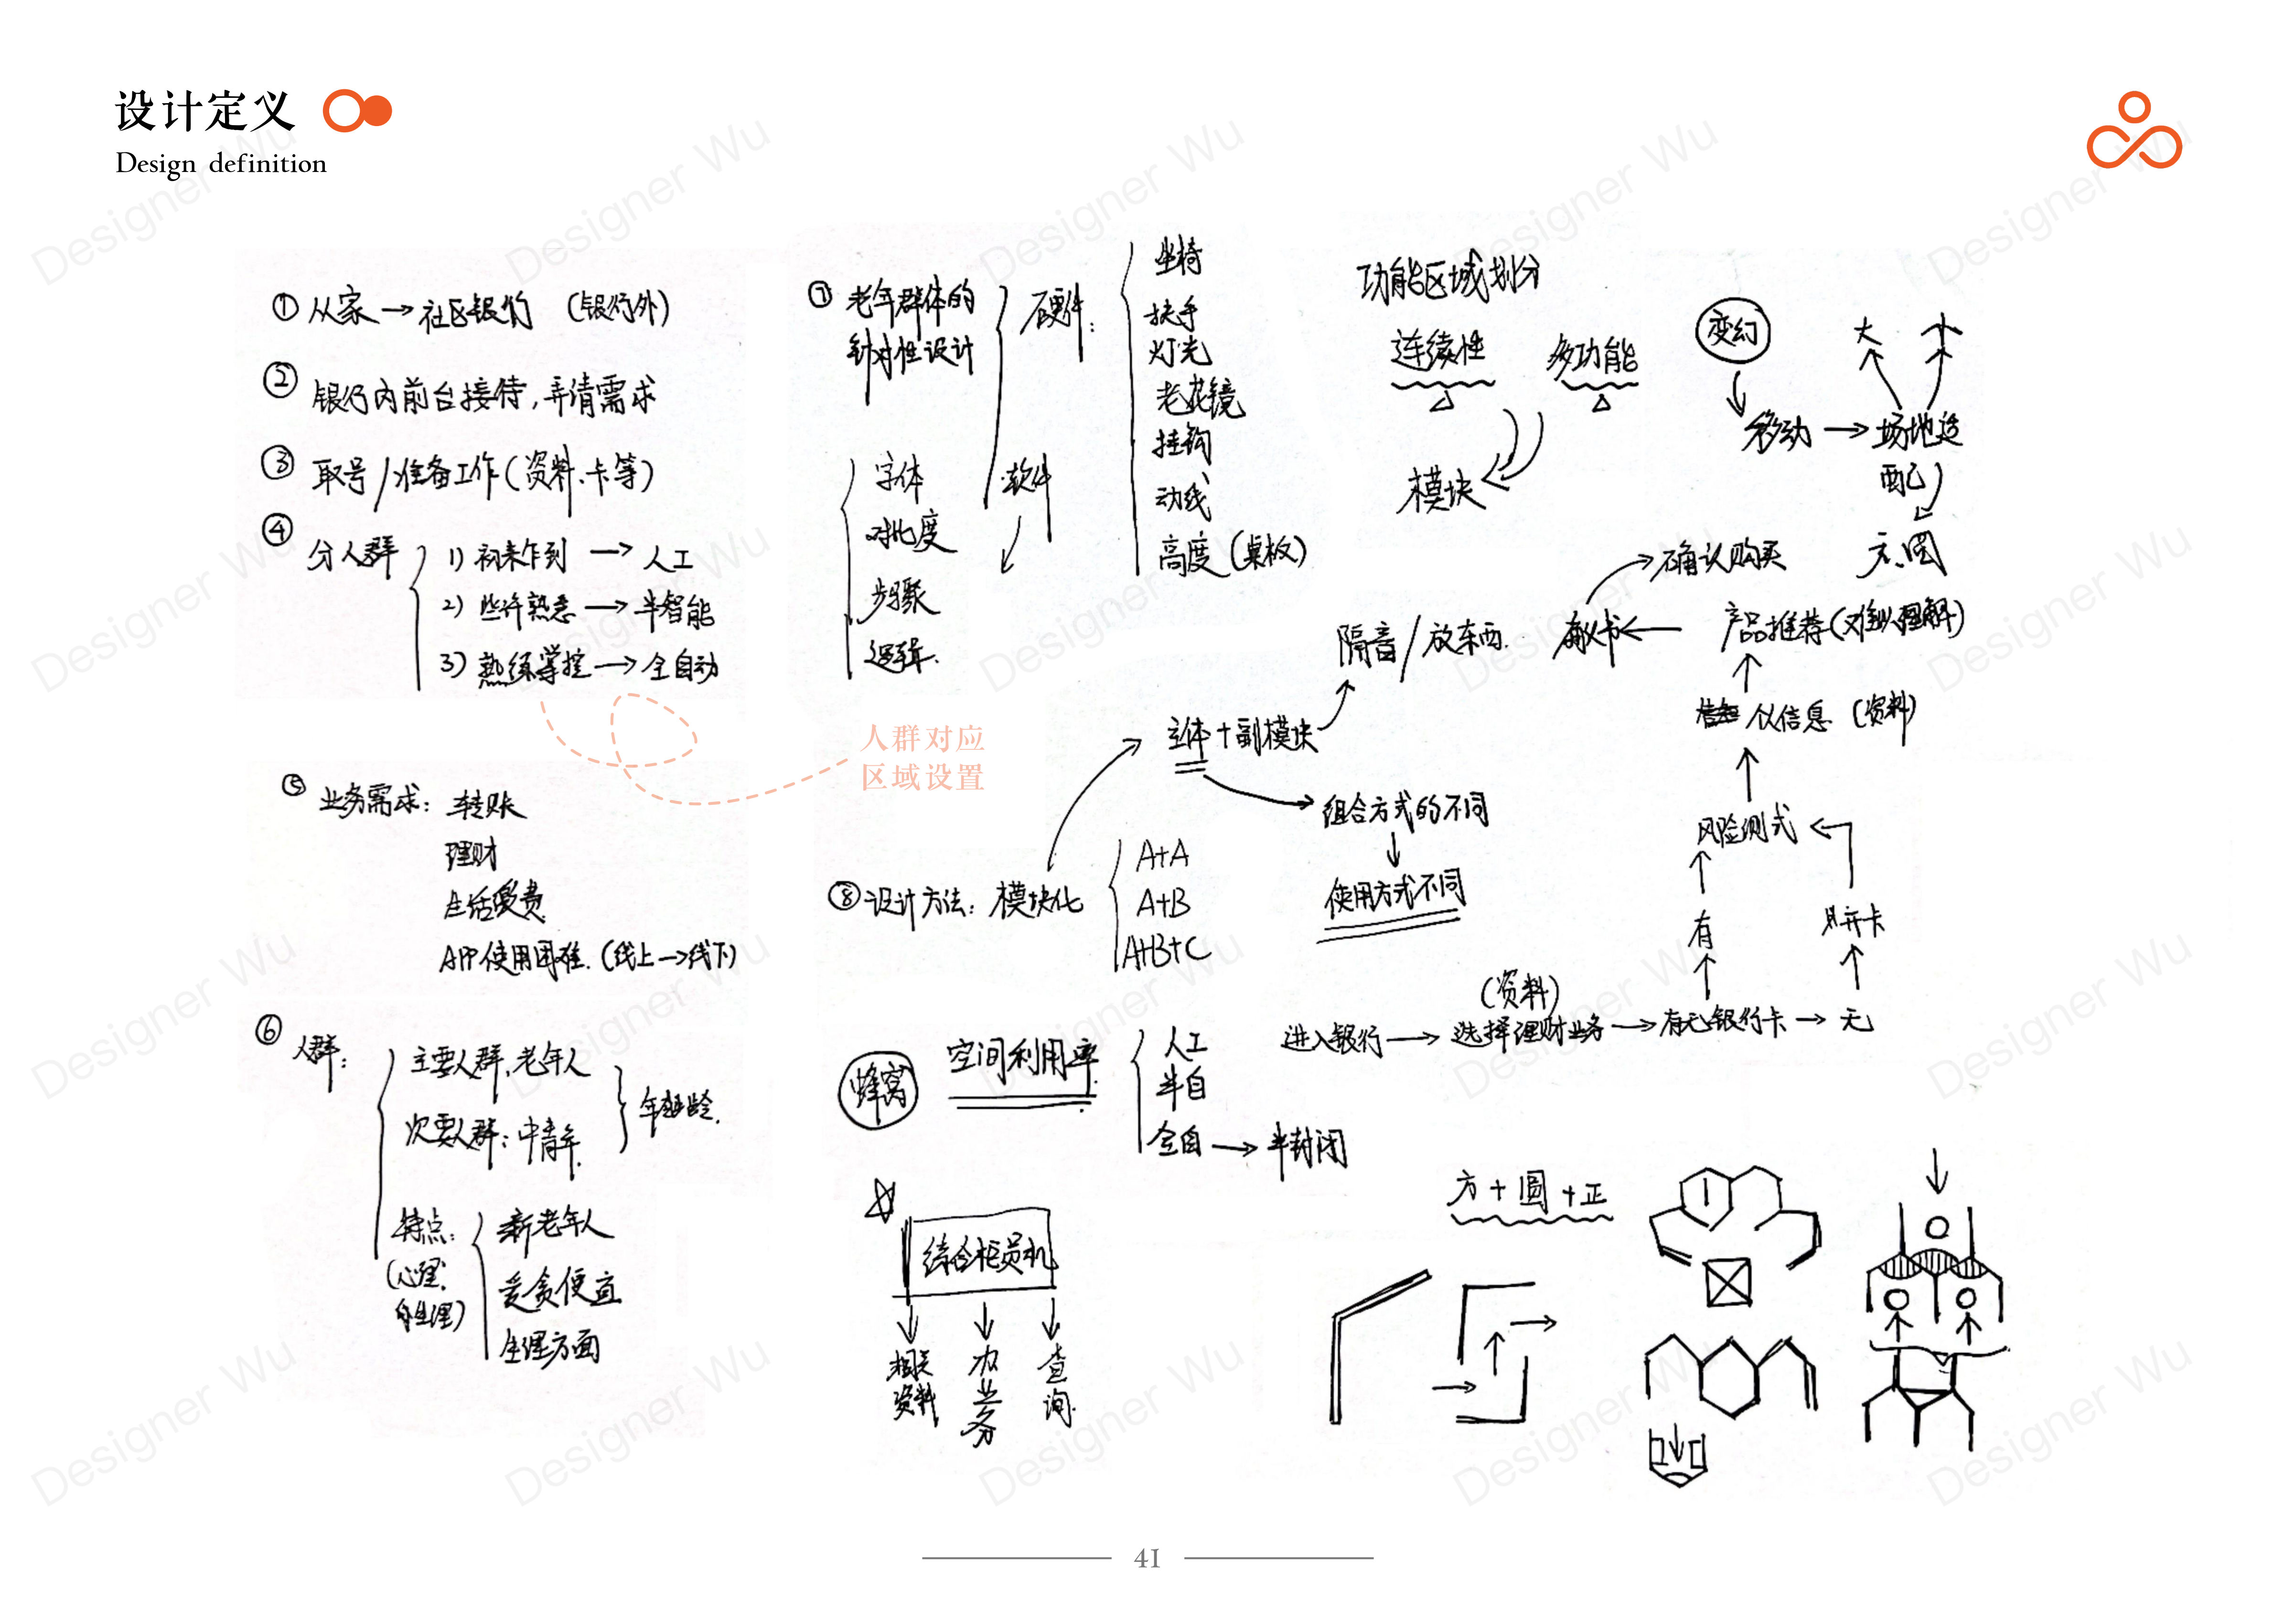 设计定义
Design definition
① 从家 → 社区银行 (银行外)
② 银行内前台接待,弄清需求
③ 取号/准备工作(资料、卡等)
④ 分人群
1) 初来乍到 → 人工
2) 些许熟悉 → 半智能
3) 熟练掌控 → 全自动
人群对应
区域设置
⑤ 业务需求: 转账
理财
生活缴费
APP使用困难.(线上→线下)
⑥ 人群:
主要人群:老年人
次要人群:中青年.
年龄.
特点:
(心理、
生理)
新老年人
爱贪便宜
生理方面
⑦ 老年群体的
针对性设计
硬件:
坐椅
扶手
灯光
老花镜
挂钩
动线
高度(桌板)
软件
字体
对比度
步骤
逻辑.
⑧ 设计方法: 模块化
A+A
A+B
A+B+C
主体+副模块
隔音/放东西.
组合方式的不同
使用方式不同
功能区域划分
连续性
多功能
模块
变幻
移动 → 场地适
配
大
小
方.圆
确认购买
产品推荐(难以理解)
信息 (资料)
风险测试
有
开卡
(资料)
进入银行 → 选择理财业务 → 有无银行卡 → 无
蜂窝
空间利用率.
人工
半自
全自 → 半封闭
结合柜员机
相关
资料
办
业
务
查
询.
方+圆+正
41
Designer Wu